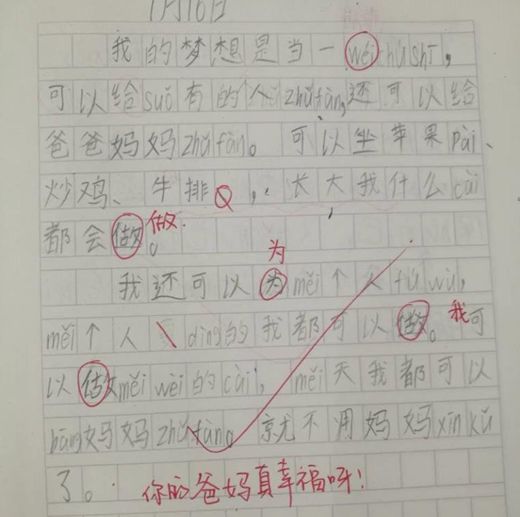 1月16日
我的梦想是当一wéi chú shī,
可以给suǒ有的人zhǔ fàn,还可以给
爸爸妈妈zhǔ fàn。可以坐苹果pài、
炒鸡、牛排,长大我什么cài
都会做。做.
为
我还可以为měi个人fú wù,
měi个人diǎng的我都可以做。我可
以估měi wèi的cài,měi天我都可以
bāng妈妈zhǔ fàn。就不用妈妈xīn kǔ
了。你的爸妈真幸福呀!